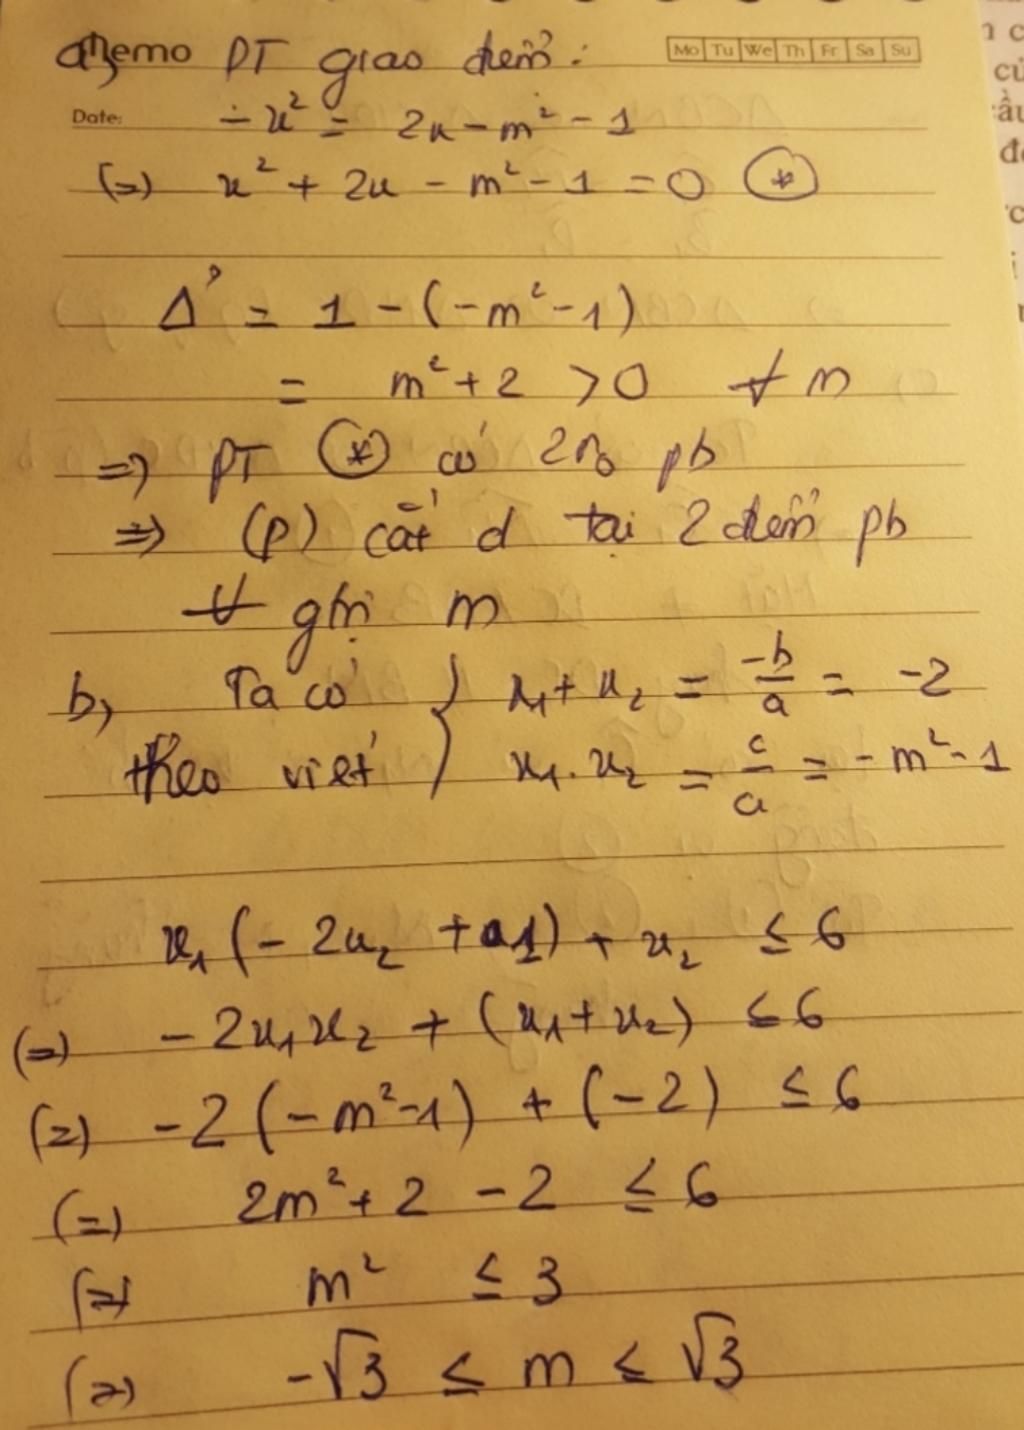 a, Memo PT giao điểm: Mo Tu We Th Fr Sa Su
Date: -x² = 2x - m² - 1
(=) x² + 2x - m² - 1 = 0 (*)
Δ' = 1 - (-m² - 1)
= m² + 2 > 0 ∀ m
=) PT (*) có 2 no pb
=) (P) cắt d tại 2 điểm pb
∀ gtrị m
b, Ta có { x₁ + x₂ = -b/a = -2
theo viet { x₁ . x₂ = c/a = -m² - 1
x₁ (- 2x₂ + 1) + x₂ ≤ 6
(=) - 2x₁x₂ + (x₁ + x₂) ≤ 6
(=) -2 (-m² - 1) + (-2) ≤ 6
(=) 2m² + 2 - 2 ≤ 6
(=) m² ≤ 3
(=) -√3 ≤ m ≤ √3